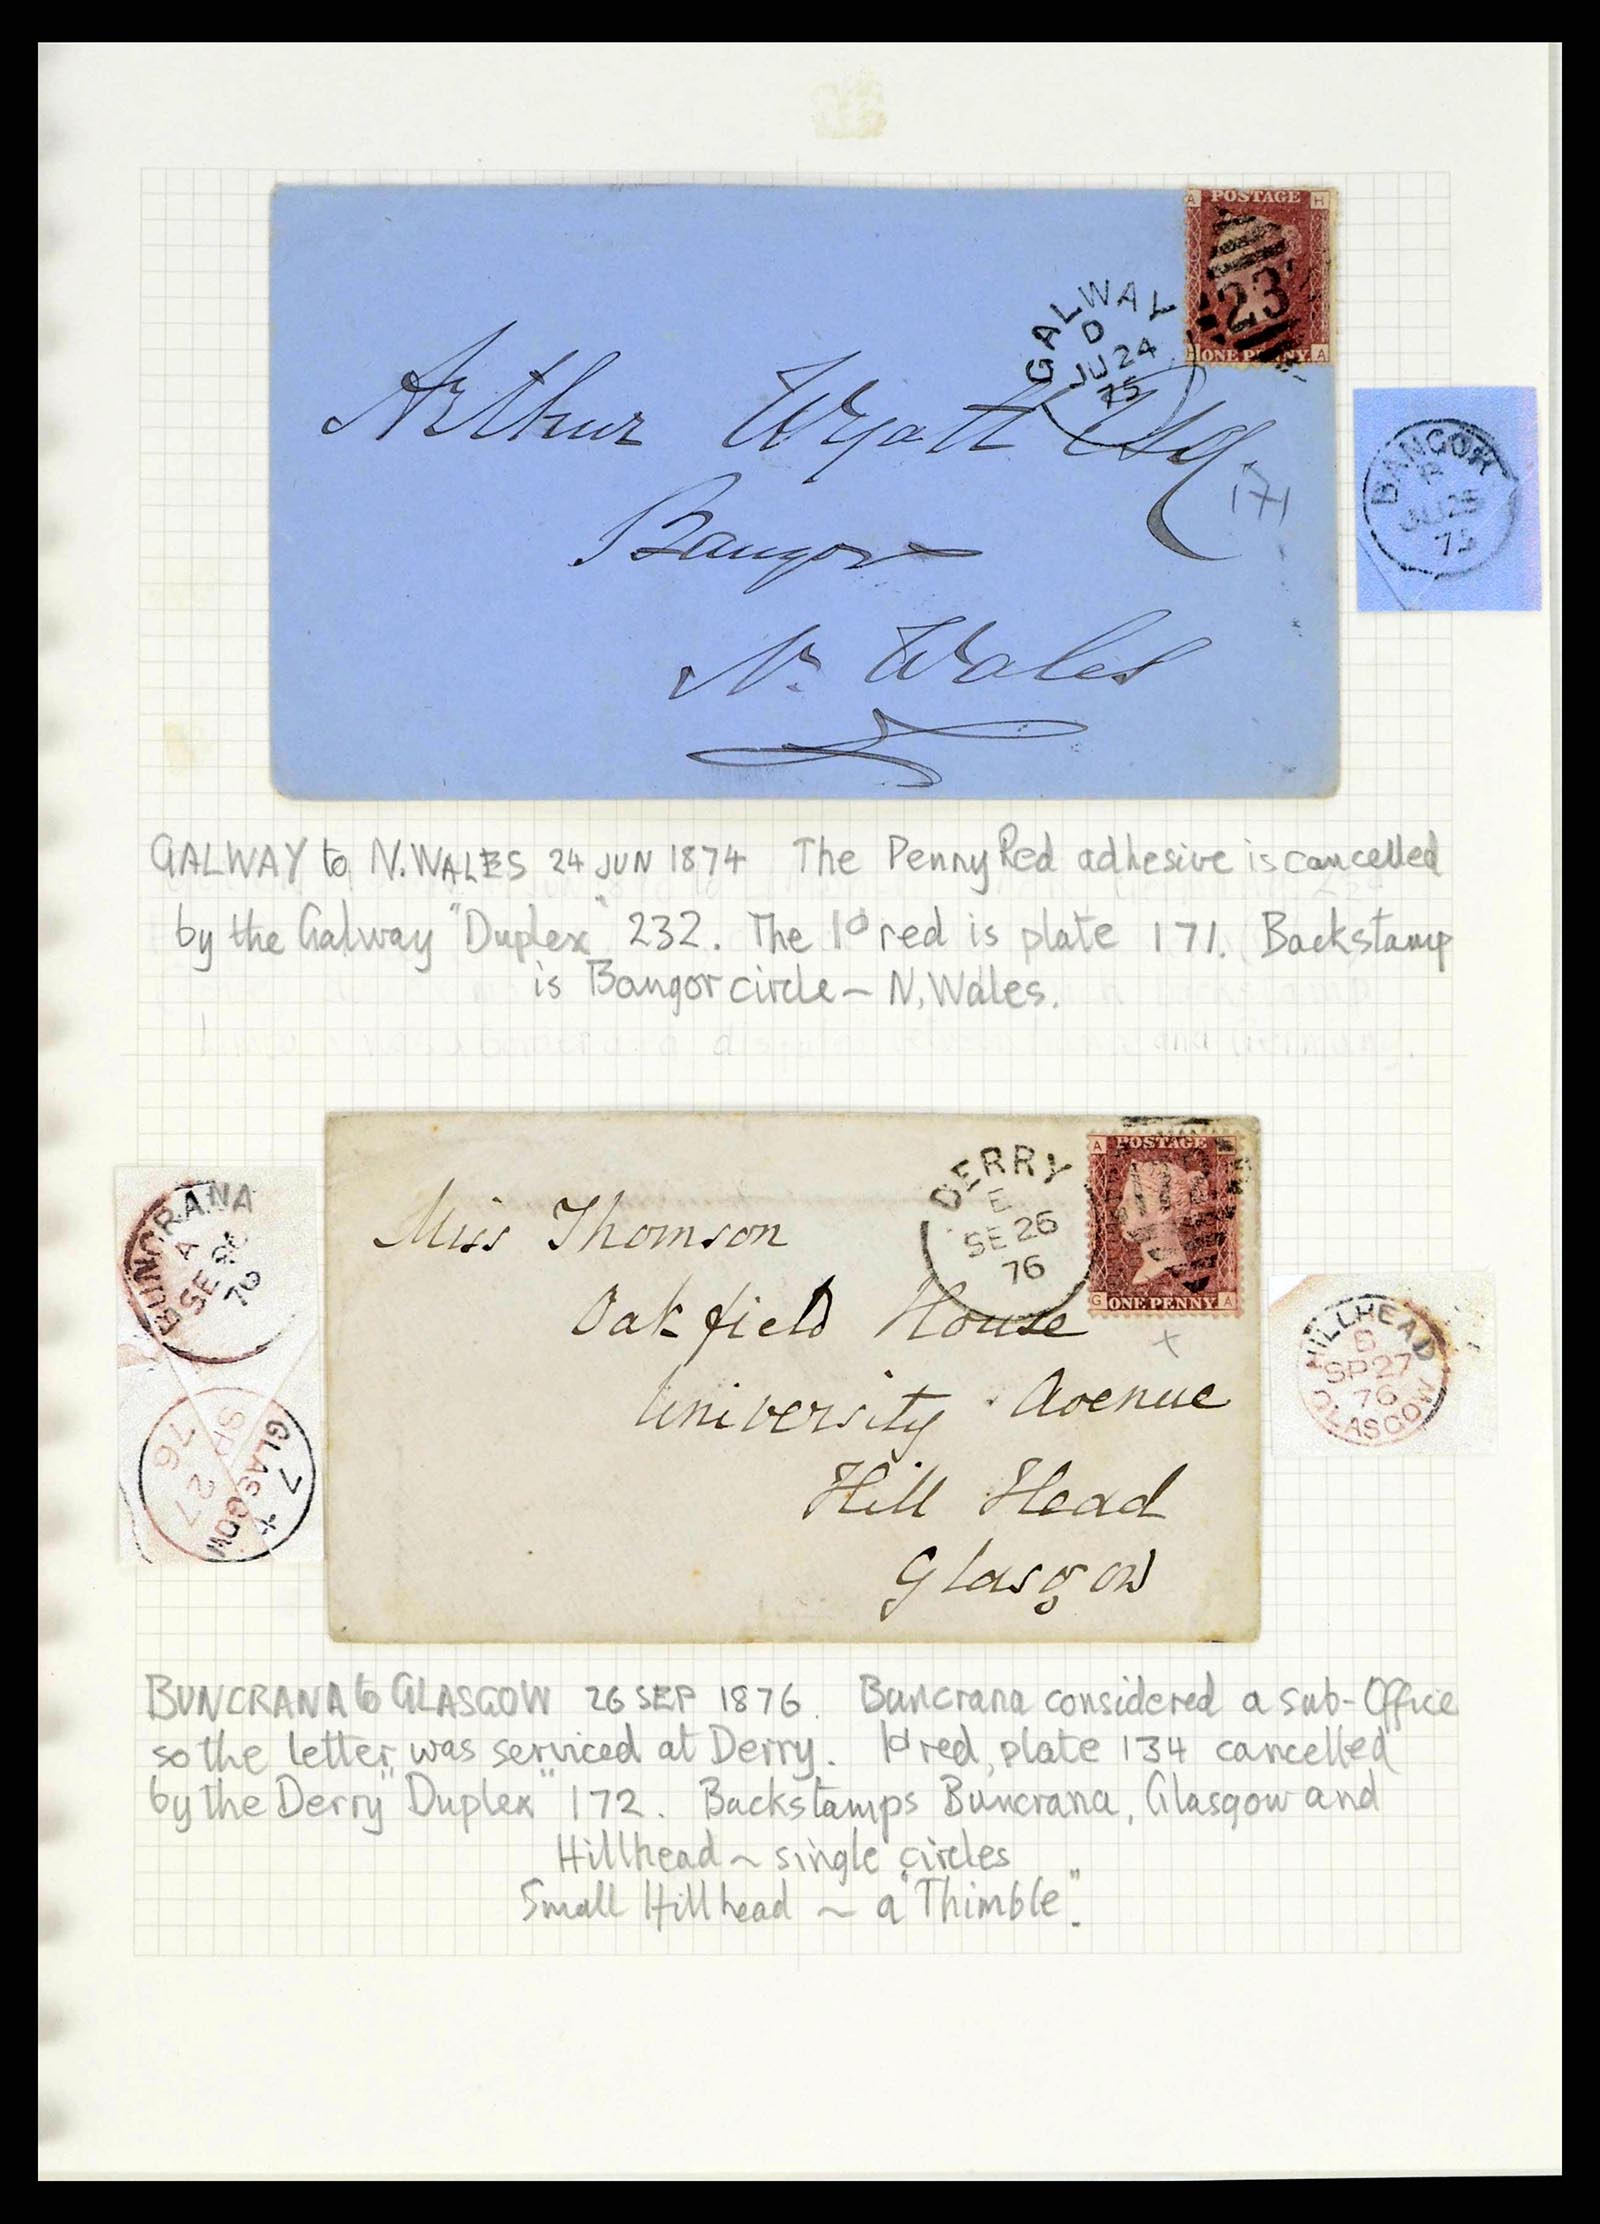 A POSTAGE H
23
ONE PENNY A
GALWAY
D
JU 24
75
Arthur Wyatt Esq.
171
Bangor
N. Wales
BANGOR
JU 25
75
GALWAY to N. WALES 24 JUN 1874 The Penny Red adhesive is cancelled
by the Galway "Duplex" 232. The 1d red is plate 171. Backstamp
is Bangor circle ~ N. Wales.
DERRY
E
SE 26
76
A POSTAGE
G ONE PENNY A
Miss Thomson
Oakfield House
University Avenue
Hill Head
Glasgow
BUNCRANA
A
SE 26
76
GLASGOW
7 X
SP 27
76
HILLHEAD
6
SP 27
76
GLASGOW
BUNCRANA to GLASGOW 26 SEP 1876. Buncrana considered a sub-Office
so the letter was serviced at Derry. 1d red, plate 134 cancelled
by the Derry "Duplex" 172. Backstamps Buncrana, Glasgow and
Hillhead ~ single circles
Small Hillhead ~ a "Thimble".